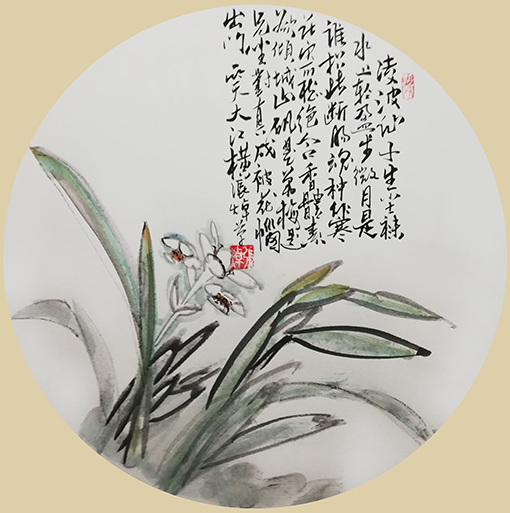 凌波仙子生尘襪
水上轻盈步微月是
谁招此断肠魂种作寒
花寄愁绝含香體素
欲倾城山矾是弟梅是
兄坐對真成被花惱
出门一笑大江横